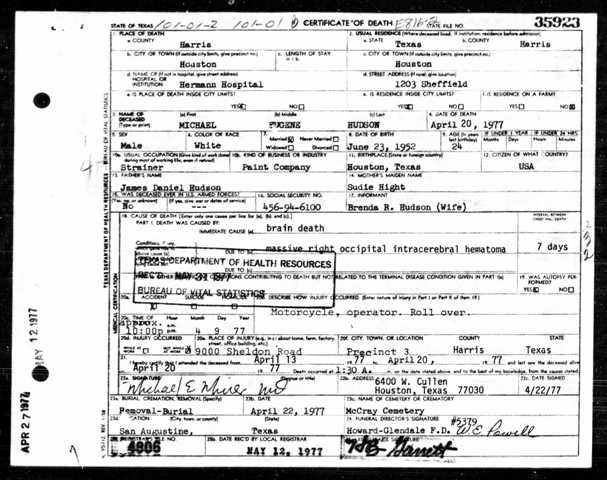 STATE OF TEXAS 101-01-2 101-01 CERTIFICATE OF DEATH E816.2 STATE FILE NO. 35923
1. PLACE OF DEATH 2. USUAL RESIDENCE (Where deceased lived. If institution: residence before admission)
a. COUNTY a. STATE b. COUNTY
Harris Texas Harris
b. CITY OR TOWN (If outside city limits, give precinct no.) c. LENGTH OF STAY c. CITY OR TOWN (If outside city limits, give precinct no.)
Houston Houston
d. NAME OF (If not in hospital, give street address) HOSPITAL OR INSTITUTION d. STREET ADDRESS (If rural, give location)
Hermann Hospital 1203 Sheffield
e. IS PLACE OF DEATH INSIDE CITY LIMITS? e. IS RESIDENCE INSIDE CITY LIMITS? f. IS RESIDENCE ON A FARM?
YES NO YES NO YES NO
3. NAME OF DECEASED (Type or print) (a) First (b) Middle (c) Last 4. DATE OF DEATH
MICHAEL EUGENE HUDSON April 20, 1977
5. SEX 6. COLOR OR RACE 7. Married Never Married Widowed Divorced 8. DATE OF BIRTH 9. AGE IF UNDER 1 YEAR IF UNDER 24 HRS.
Male White June 23, 1952 24 Months Days Hours Min.
10a. USUAL OCCUPATION (Give kind of work done during most of working life, even if retired) 10b. KIND OF BUSINESS OR INDUSTRY 11. BIRTHPLACE (State or foreign country) 12. CITIZEN OF WHAT COUNTRY?
Strainer Paint Company Houston, Texas USA
13. FATHER'S NAME 14. MOTHER'S MAIDEN NAME
James Daniel Hudson Sudie Hight
15. WAS DECEASED EVER IN U.S. ARMED FORCES? 16. SOCIAL SECURITY NO. 17. INFORMANT
No 456-94-6100 Brenda R. Hudson (Wife)
18. CAUSE OF DEATH (Enter only one cause per line for (a), (b), and (c).)
PART I DEATH WAS CAUSED BY:
IMMEDIATE CAUSE (a) brain death
DUE TO (b) massive right occipital intracerebral hematoma 7 days
TEXAS DEPARTMENT OF HEALTH RESOURCES
DUE TO (c)
REC'D MAY 31 1977
CONTRIBUTING TO DEATH BUT NOT RELATED TO THE TERMINAL DISEASE CONDITION GIVEN IN PART I(a) 19. WAS AUTOPSY PERFORMED?
BUREAU OF VITAL STATISTICS
YES NO
20a. ACCIDENT SUICIDE 20b. DESCRIBE HOW INJURY OCCURRED. (Enter nature of injury in Part I or Part II of item 18.)
Motorcycle, operator. Roll over.
20c. TIME OF Hour Month Day Year
approx.
10:00p 4 9 77
20d. INJURY OCCURRED 20e. PLACE OF INJURY (e.g. in or about home, farm, factory, street, office building, etc.) 20f. CITY, TOWN, OR LOCATION COUNTY STATE
9000 Sheldon Road Precinct 3 Harris Texas
21. I hereby certify that I attended the deceased from April 13 77 April 20, 77 and last saw the deceased alive
April 20 77 Death occurred at 1:30 A.m. on the date stated above, and to the best of my knowledge, from the causes stated.
22a. SIGNATURE 22b. ADDRESS 22c. DATE SIGNED
6400 W. Cullen
Houston, Texas 77030 4/22/77
23a. BURIAL, CREMATION, REMOVAL (Specify) 23b. DATE 23c. NAME OF CEMETERY OR CREMATORY
Removal-Burial April 22, 1977 McCray Cemetery
23d. LOCATION (City, town, or county) (State) 24. FUNERAL DIRECTOR'S SIGNATURE
#5379
San Augustine, Texas Howard-Glendale F.D. W.E. Powell
25a. REGISTRAR'S FILE NO. 25b. DATE REC'D BY LOCAL REGISTRAR
4806 MAY 12, 1977
TEXAS DEPARTMENT OF HEALTH RESOURCES BUREAU OF VITAL STATISTICS
MEDICAL CERTIFICATION
MAY 12 1977
APR 27 1977